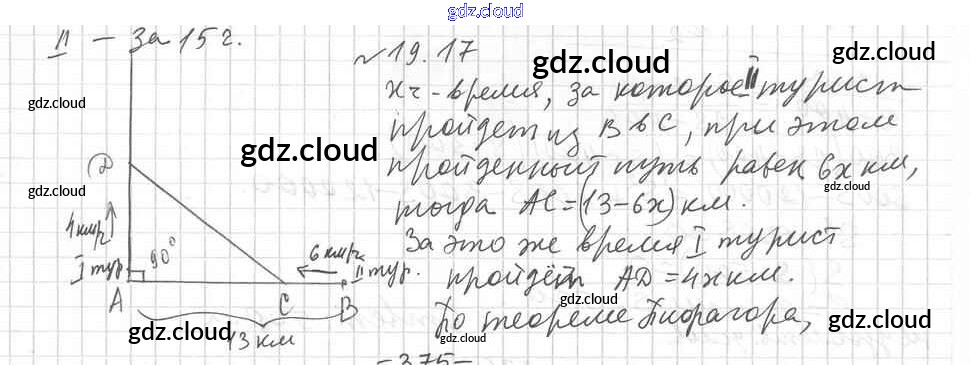 gdz.cloud
II – За 15 ч.
№ 19.17
gdz.cloud
gdz.cloud
x ч - время, за которое II турист
пройдет из B в C, при этом
gdz.cloud
пройденный путь равен 6x км,
D
gdz.cloud
gdz.cloud
тогда AC = (13 – 6x) км.
4 км/ч
За это же время I турист
90°
6 км/ч
I тур.
II тур.
пройдёт AD = 4x км.
gdz.cloud
gdz.cloud
A
C
B
По теореме Пифагора,
gdz.cloud
gdz.cloud
gdz.cloud
13 км
gdz.cloud
– 375 –